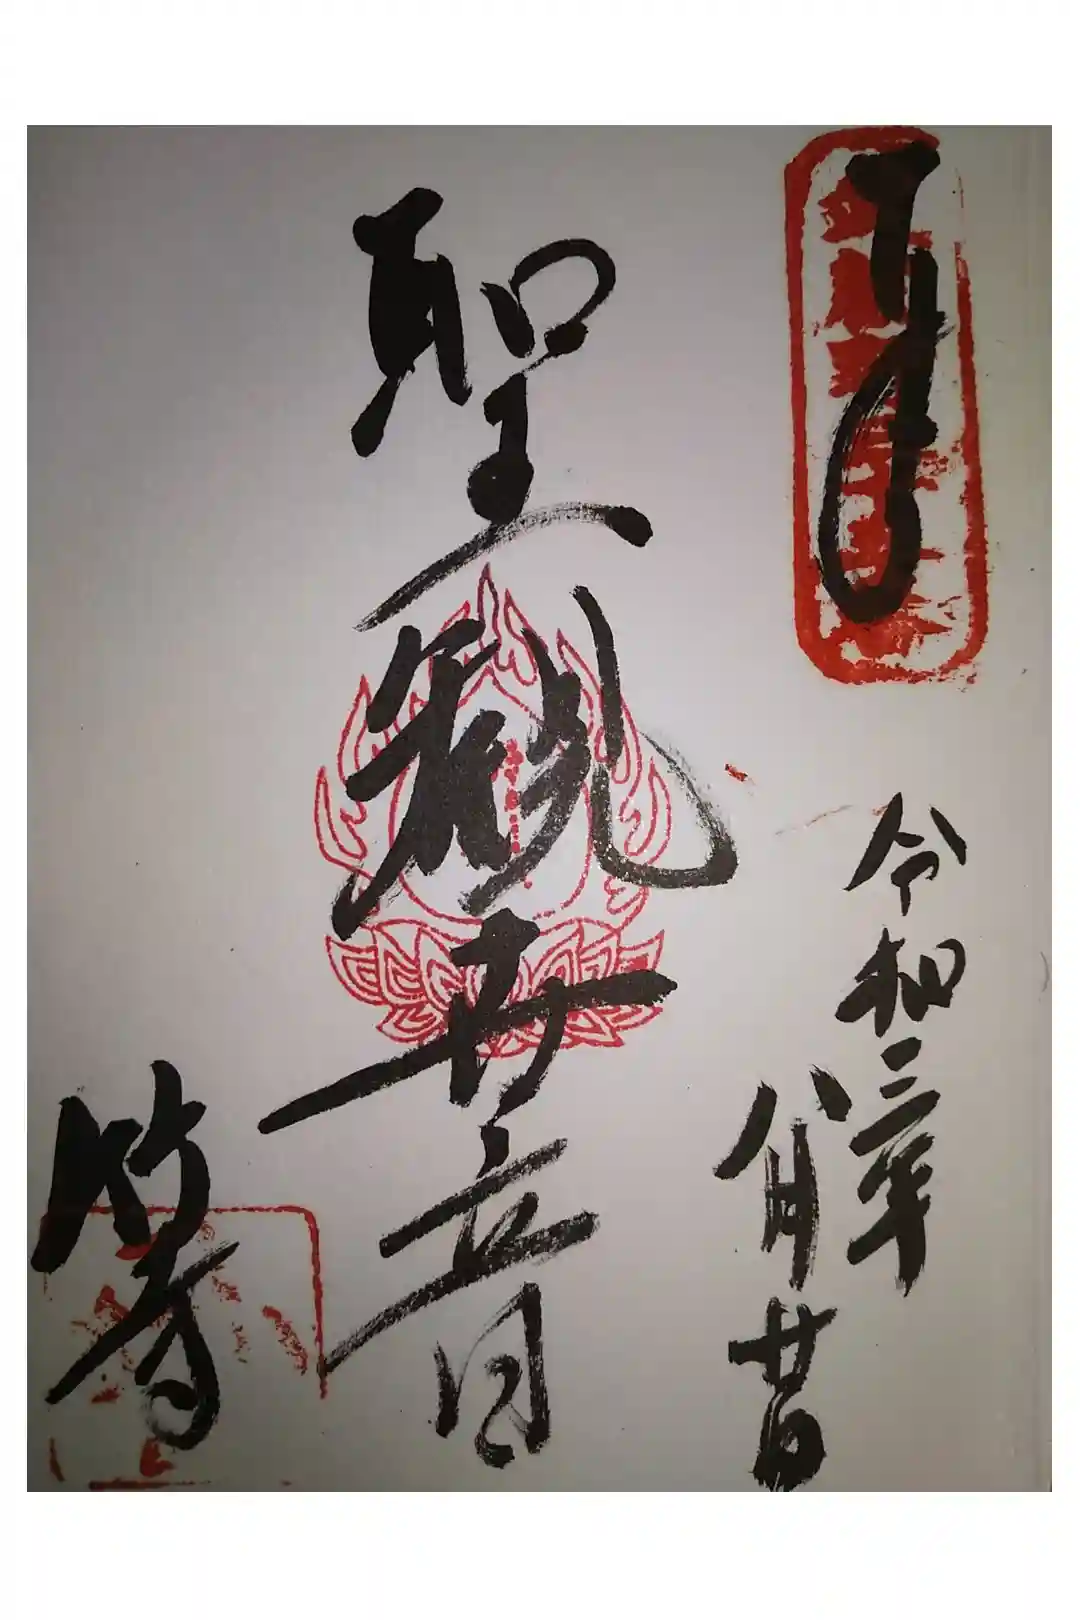 奉拝
令和三年
八月廿日
聖観世音
竹寺